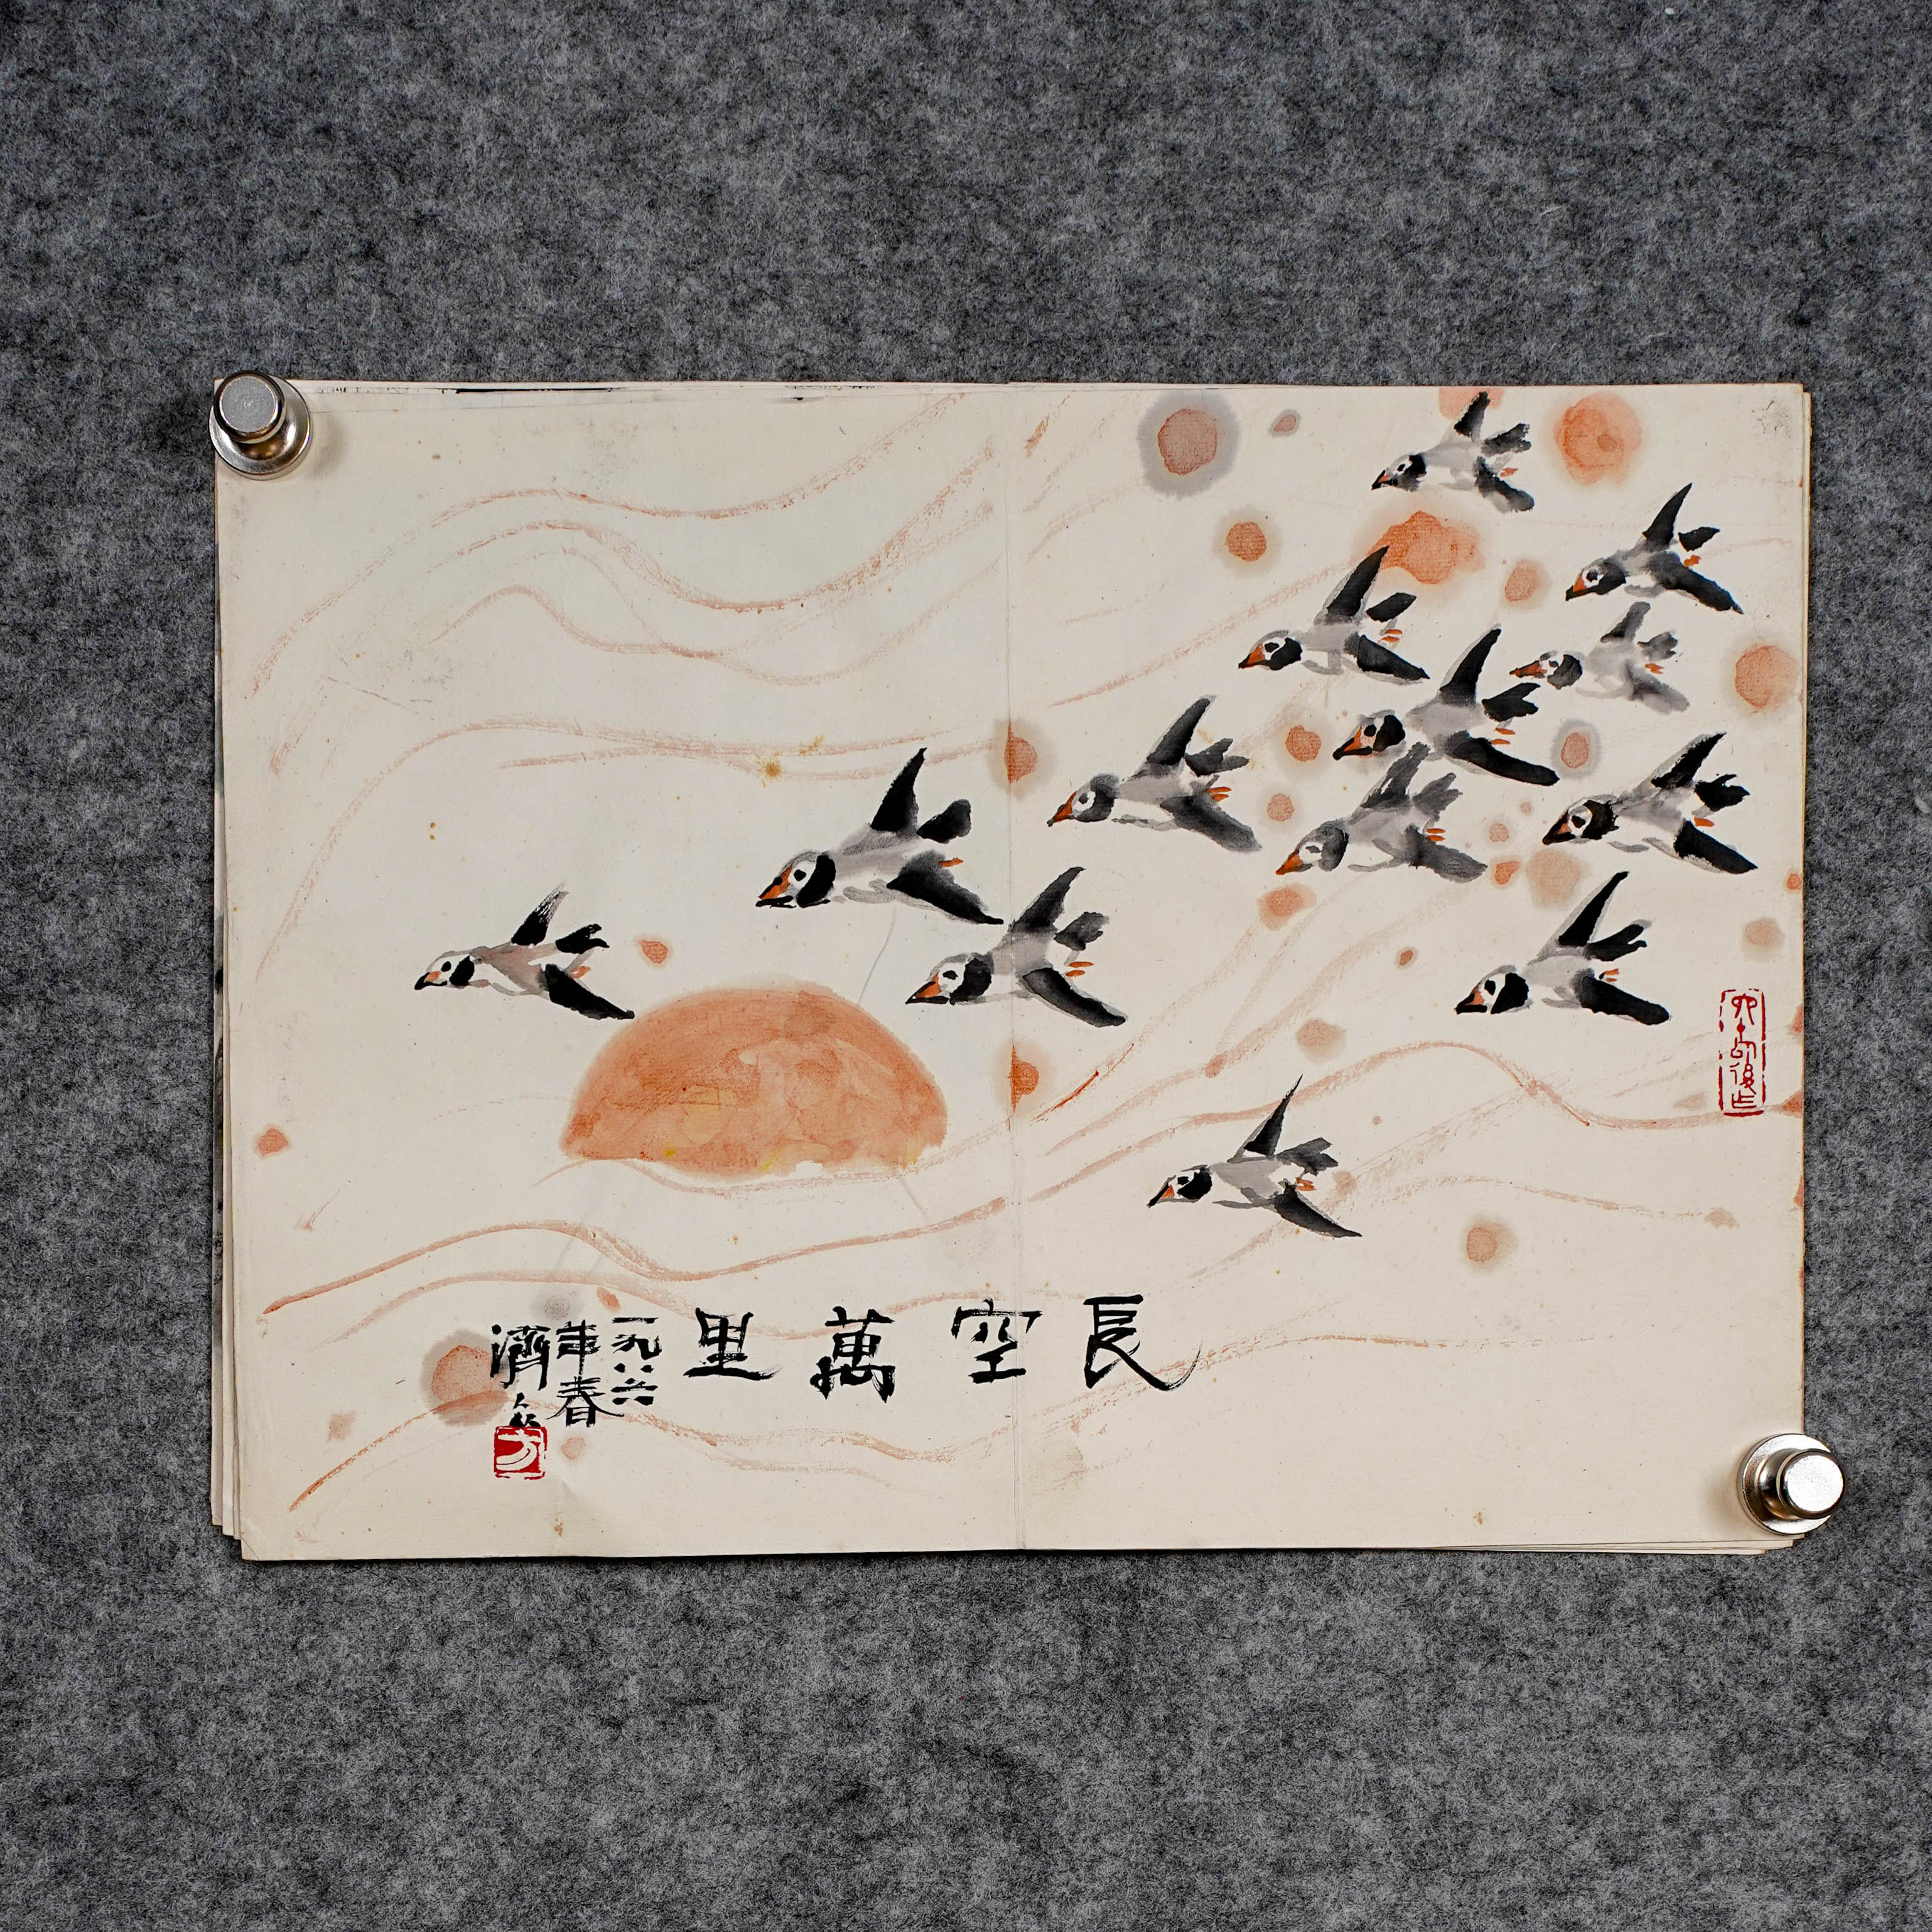 長空萬里
一九八六
年春
濟众
方